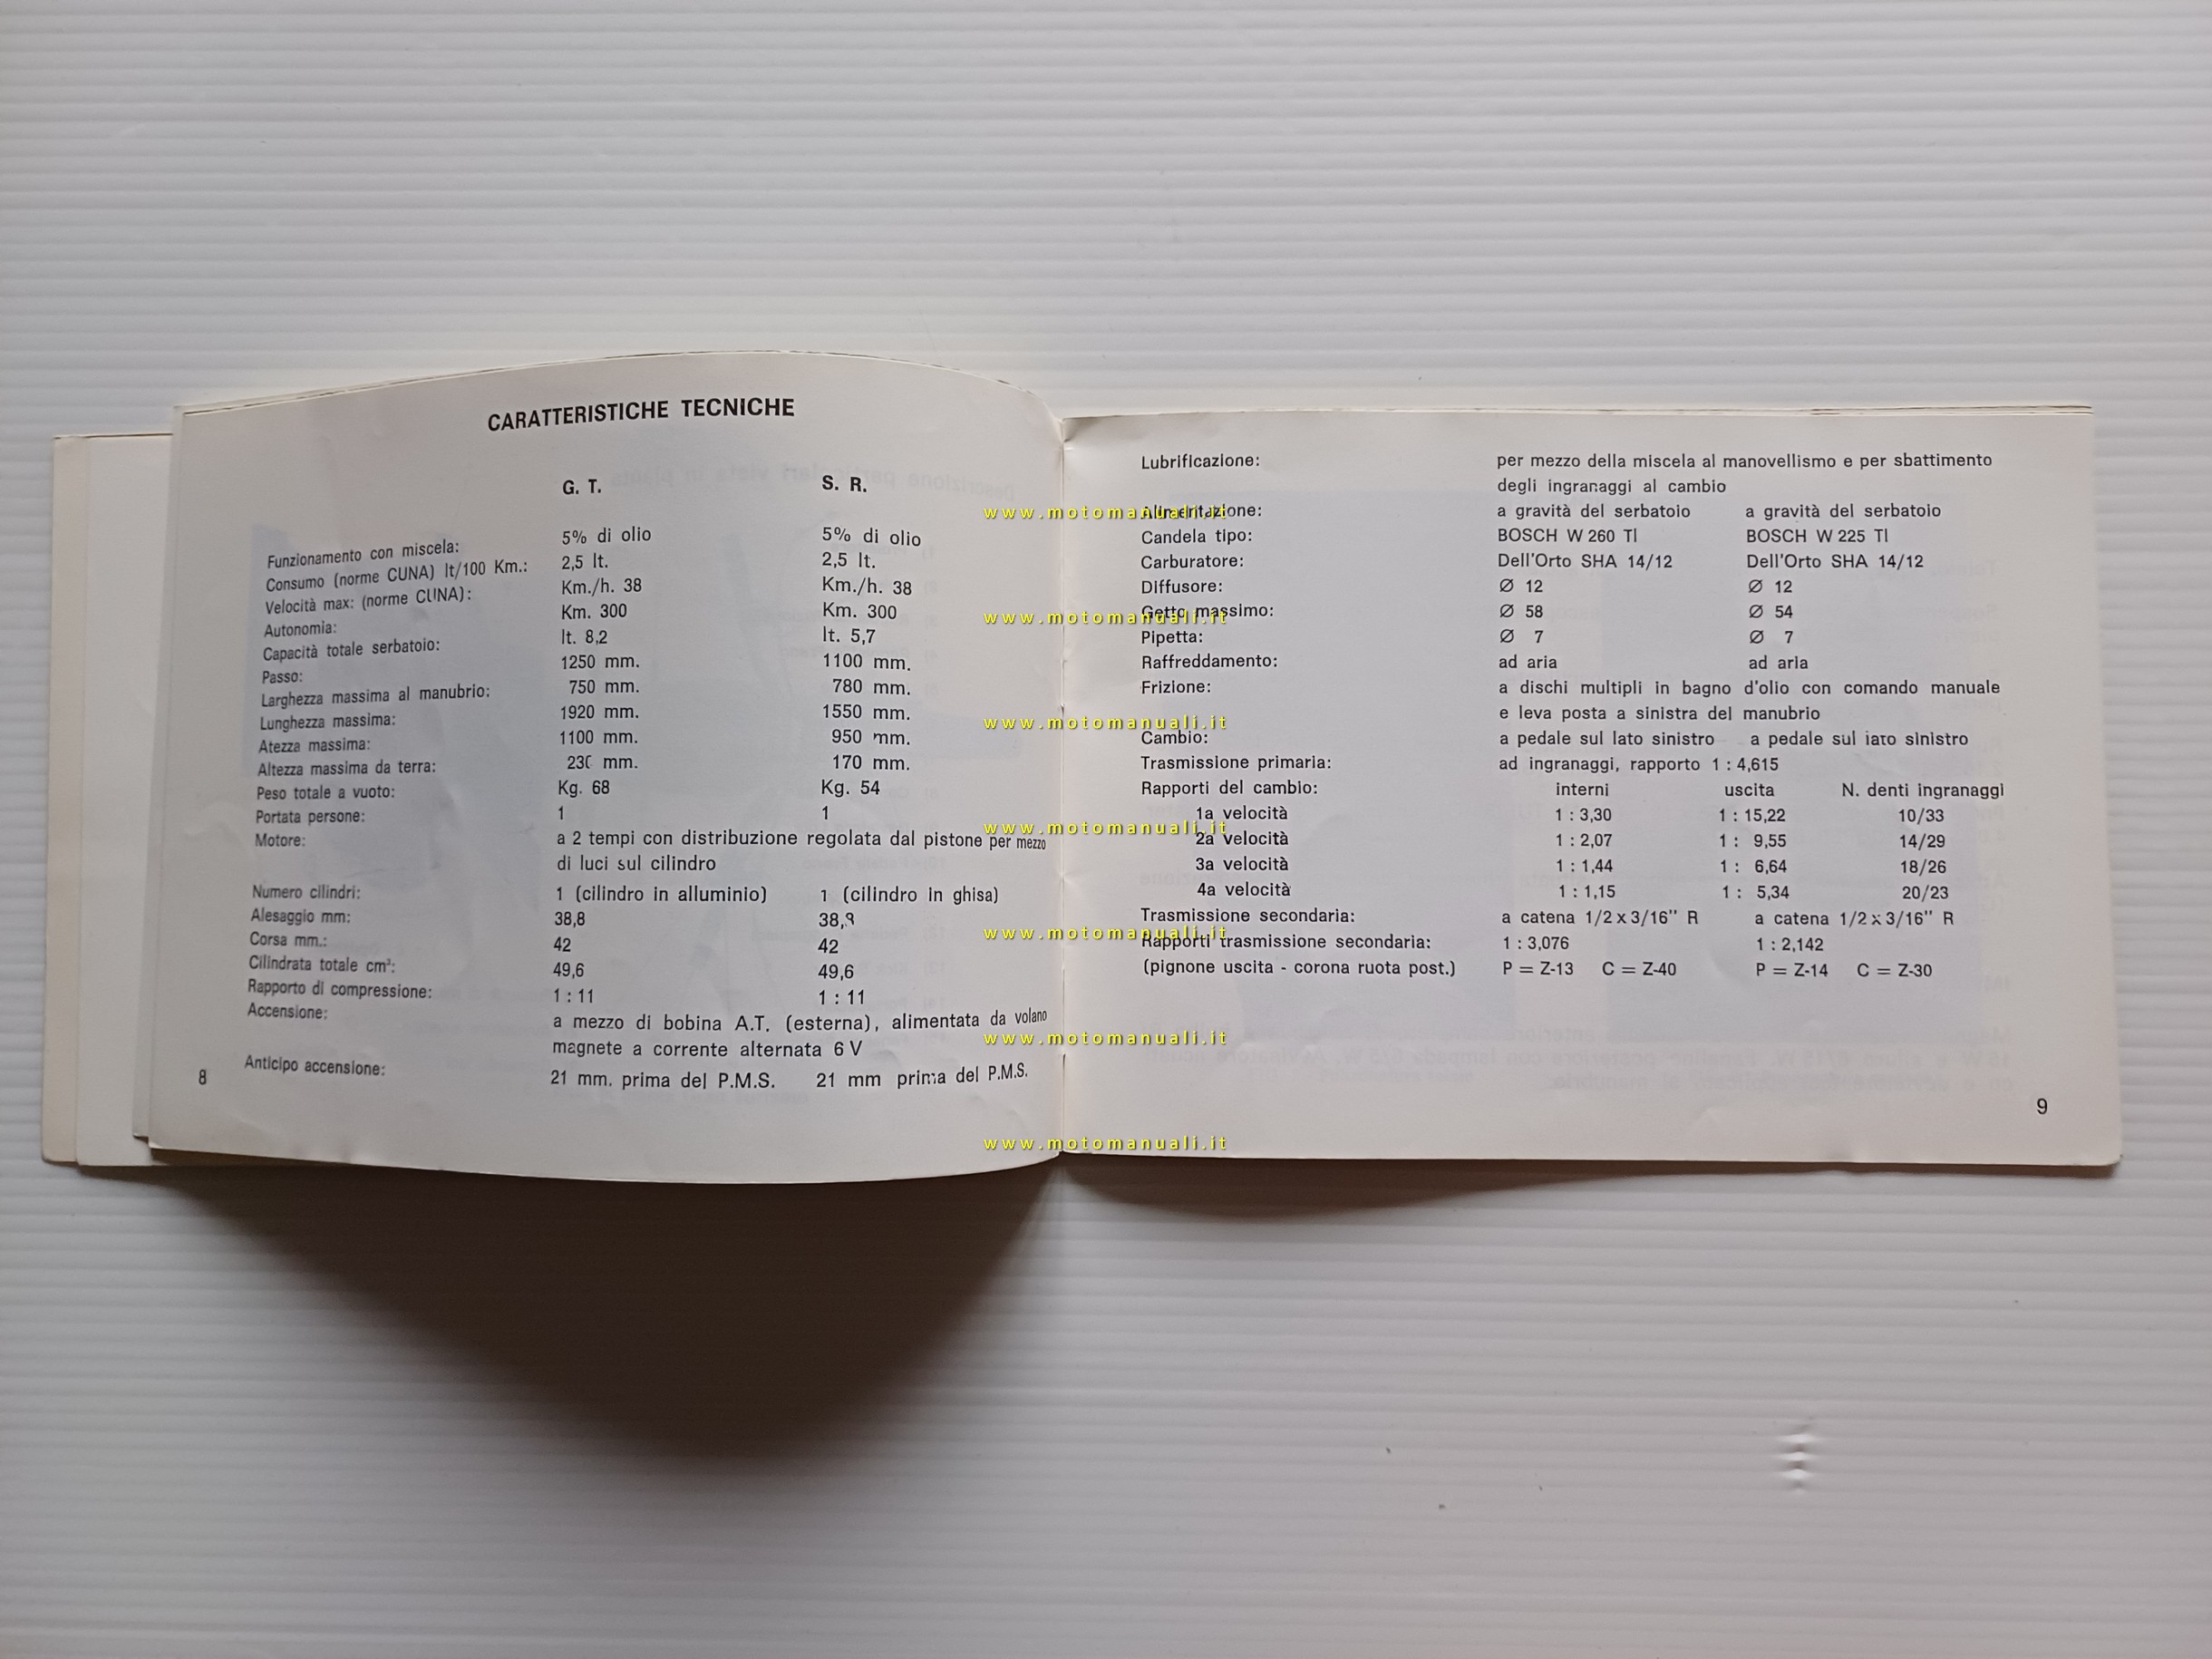 CARATTERISTICHE TECNICHE
G. T. S. R.
Funzionamento con miscela: 5% di olio 5% di olio
Consumo (norme CUNA) lt/100 Km.: 2,5 lt. 2,5 lt.
Velocità max: (norme CUNA): Km./h. 38 Km./h. 38
Autonomia: Km. 300 Km. 300
Capacità totale serbatoio: lt. 8,2 lt. 5,7
Passo: 1250 mm. 1100 mm.
Larghezza massima al manubrio: 750 mm. 780 mm.
Lunghezza massima: 1920 mm. 1550 mm.
Atezza massima: 1100 mm. 950 mm.
Altezza massima da terra: 230 mm. 170 mm.
Peso totale a vuoto: Kg. 68 Kg. 54
Portata persone: 1 1
Motore: a 2 tempi con distribuzione regolata dal pistone per mezzo
di luci sul cilindro
Numero cilindri: 1 (cilindro in alluminio) 1 (cilindro in ghisa)
Alesaggio mm: 38,8 38,8
Corsa mm.: 42 42
Cilindrata totale cm³: 49,6 49,6
Rapporto di compressione: 1 : 11 1 : 11
Accensione: a mezzo di bobina A.T. (esterna), alimentata da volano
magnete a corrente alternata 6 V
Anticipo accensione: 21 mm. prima del P.M.S. 21 mm prima del P.M.S.
8
Lubrificazione: per mezzo della miscela al manovellismo e per sbattimento
degli ingranaggi al cambio
Alimentazione: a gravità del serbatoio a gravità del serbatoio
Candela tipo: BOSCH W 260 TI BOSCH W 225 TI
Carburatore: Dell'Orto SHA 14/12 Dell'Orto SHA 14/12
Diffusore: Ø 12 Ø 12
Getto massimo: Ø 58 Ø 54
Pipetta: Ø 7 Ø 7
Raffreddamento: ad aria ad aria
Frizione: a dischi multipli in bagno d'olio con comando manuale
e leva posta a sinistra del manubrio
Cambio: a pedale sul lato sinistro a pedale sul lato sinistro
Trasmissione primaria: ad ingranaggi, rapporto 1 : 4,615
Rapporti del cambio: interni uscita N. denti ingranaggi
1a velocità 1 : 3,30 1 : 15,22 10/33
2a velocità 1 : 2,07 1 : 9,55 14/29
3a velocità 1 : 1,44 1 : 6,64 18/26
4a velocità 1 : 1,15 1 : 5,34 20/23
Trasmissione secondaria: a catena 1/2 x 3/16" R a catena 1/2 x 3/16" R
Rapporti trasmissione secondaria: 1 : 3,076 1 : 2,142
(pignone uscita - corona ruota post.) P = Z-13 C = Z-40 P = Z-14 C = Z-30
9
www.motomanuali.it
www.motomanuali.it
www.motomanuali.it
www.motomanuali.it
www.motomanuali.it
www.motomanuali.it
www.motomanuali.it